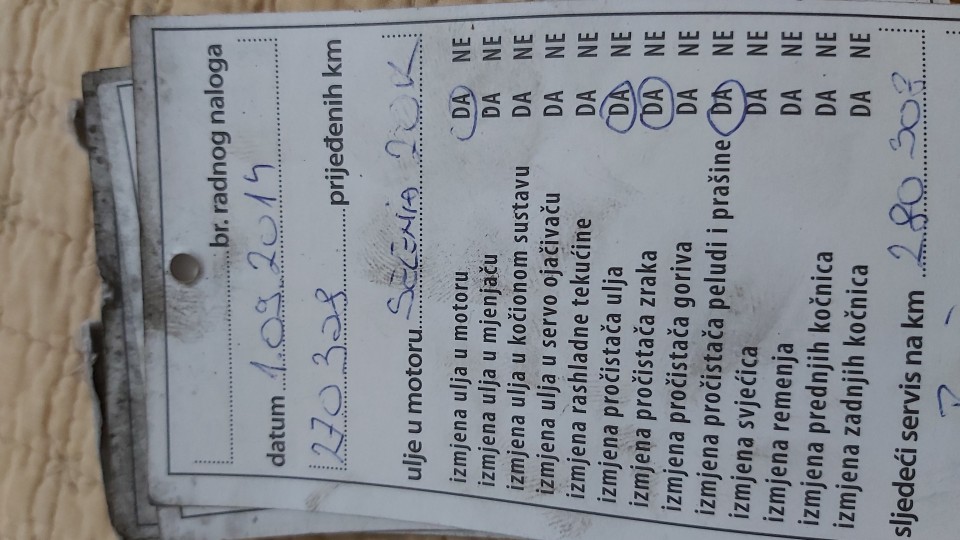 br. radnog naloga
datum 1.09.2014
270 328 prijeđenih km
ulje u motoru SELENIA 20K
izmjena ulja u motoru DA NE
izmjena ulja u mjenjaču DA NE
izmjena ulja u kočionom sustavu DA NE
izmjena ulja u servo ojačivaču DA NE
izmjena rashladne tekućine DA NE
izmjena pročistača ulja DA NE
izmjena pročistača zraka DA NE
izmjena pročistača goriva DA NE
izmjena pročistača peludi i prašine DA NE
izmjena svjećica DA NE
izmjena remenja DA NE
izmjena prednjih kočnica DA NE
izmjena zadnjih kočnica DA NE
sljedeći servis na km 280 307